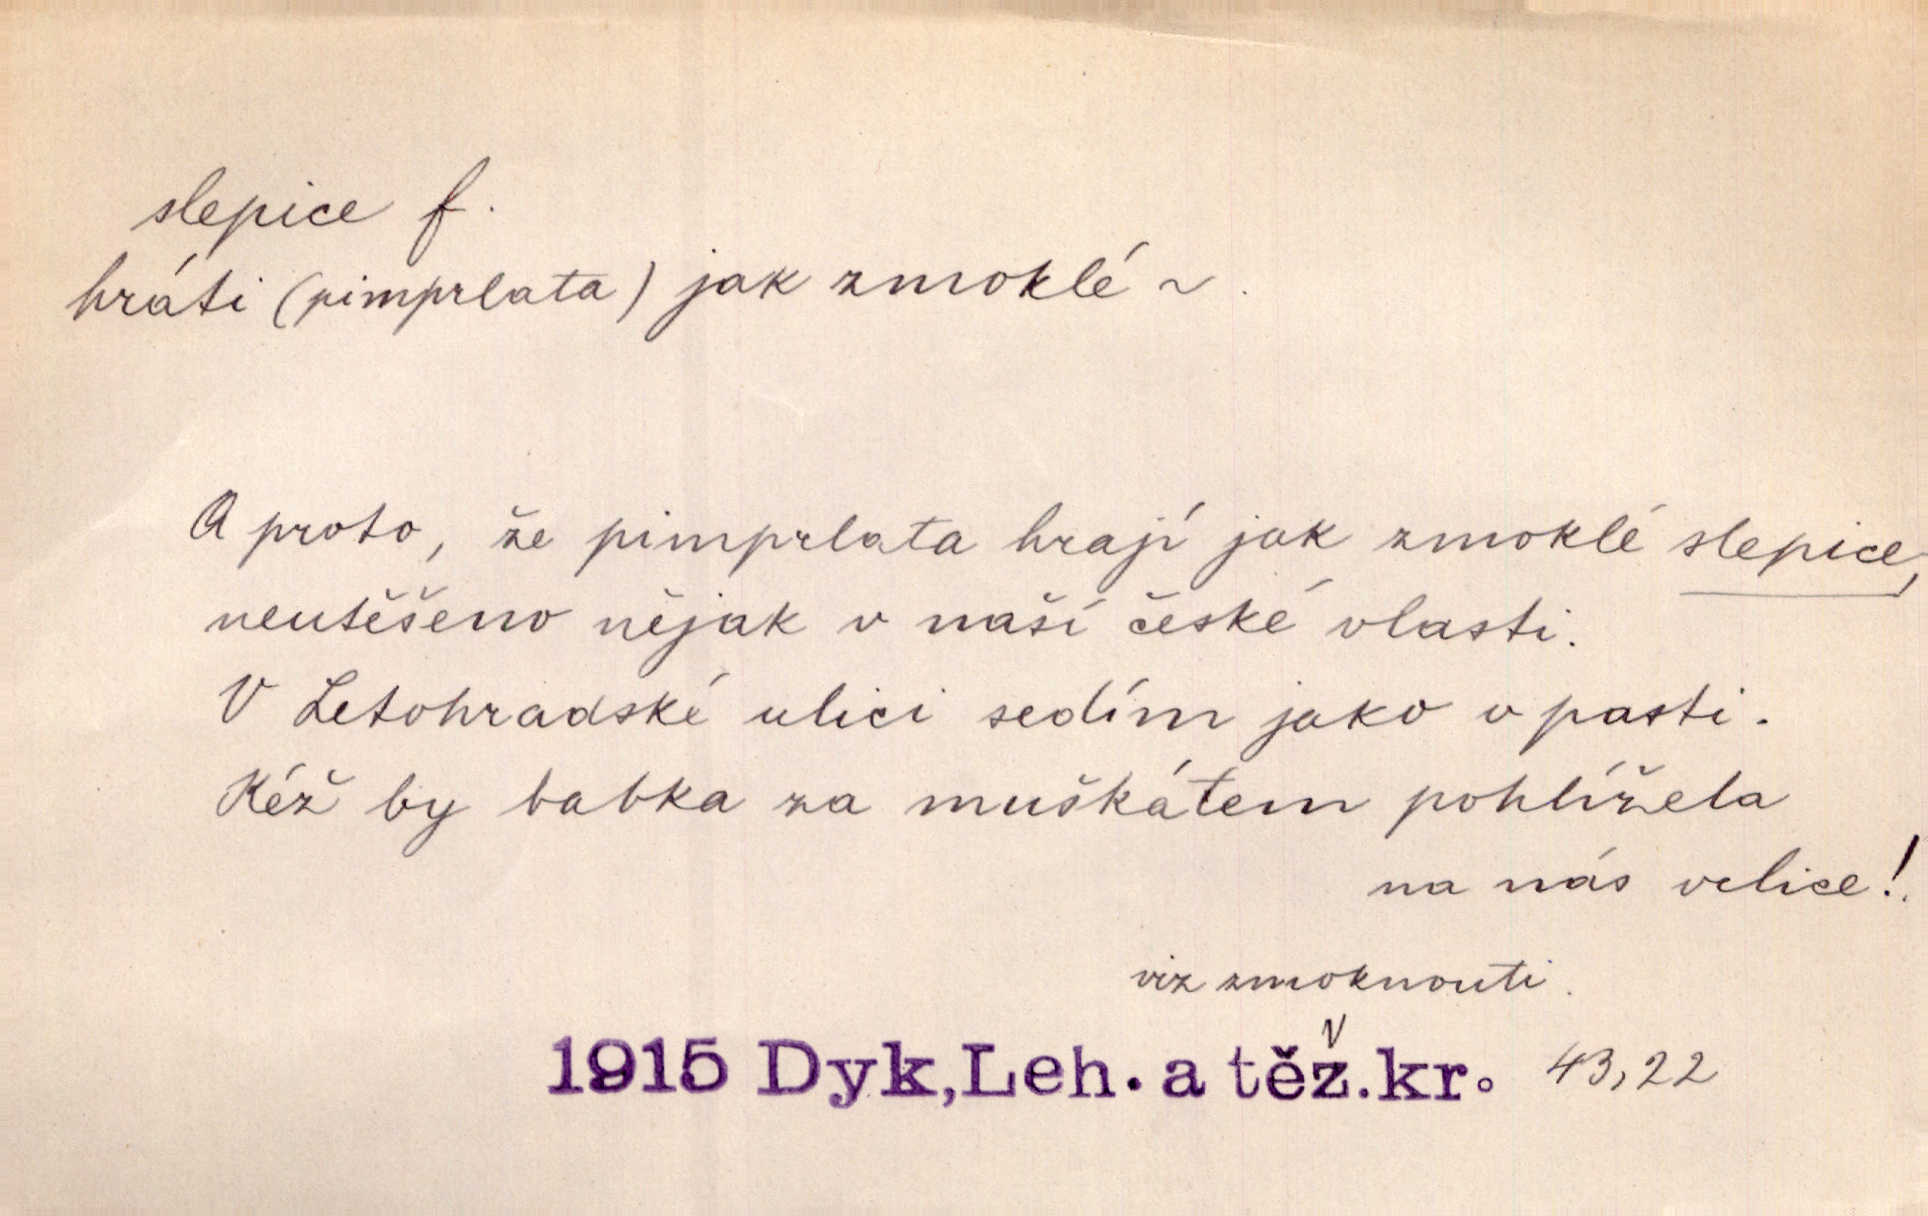 slepice f.
hráti (pimprlata) jak zmoklé ~.
A proto, že pimprlata hrají jak zmoklé slepice,
neutěšeno nějak v naší české vlasti.
V Letohradské ulici sedím jako v pasti.
Kéž by babka za muškátem pohlížela
na nás velice!
viz zmoknouti.
1915 Dyk,Leh. a těž.kr. 43,22